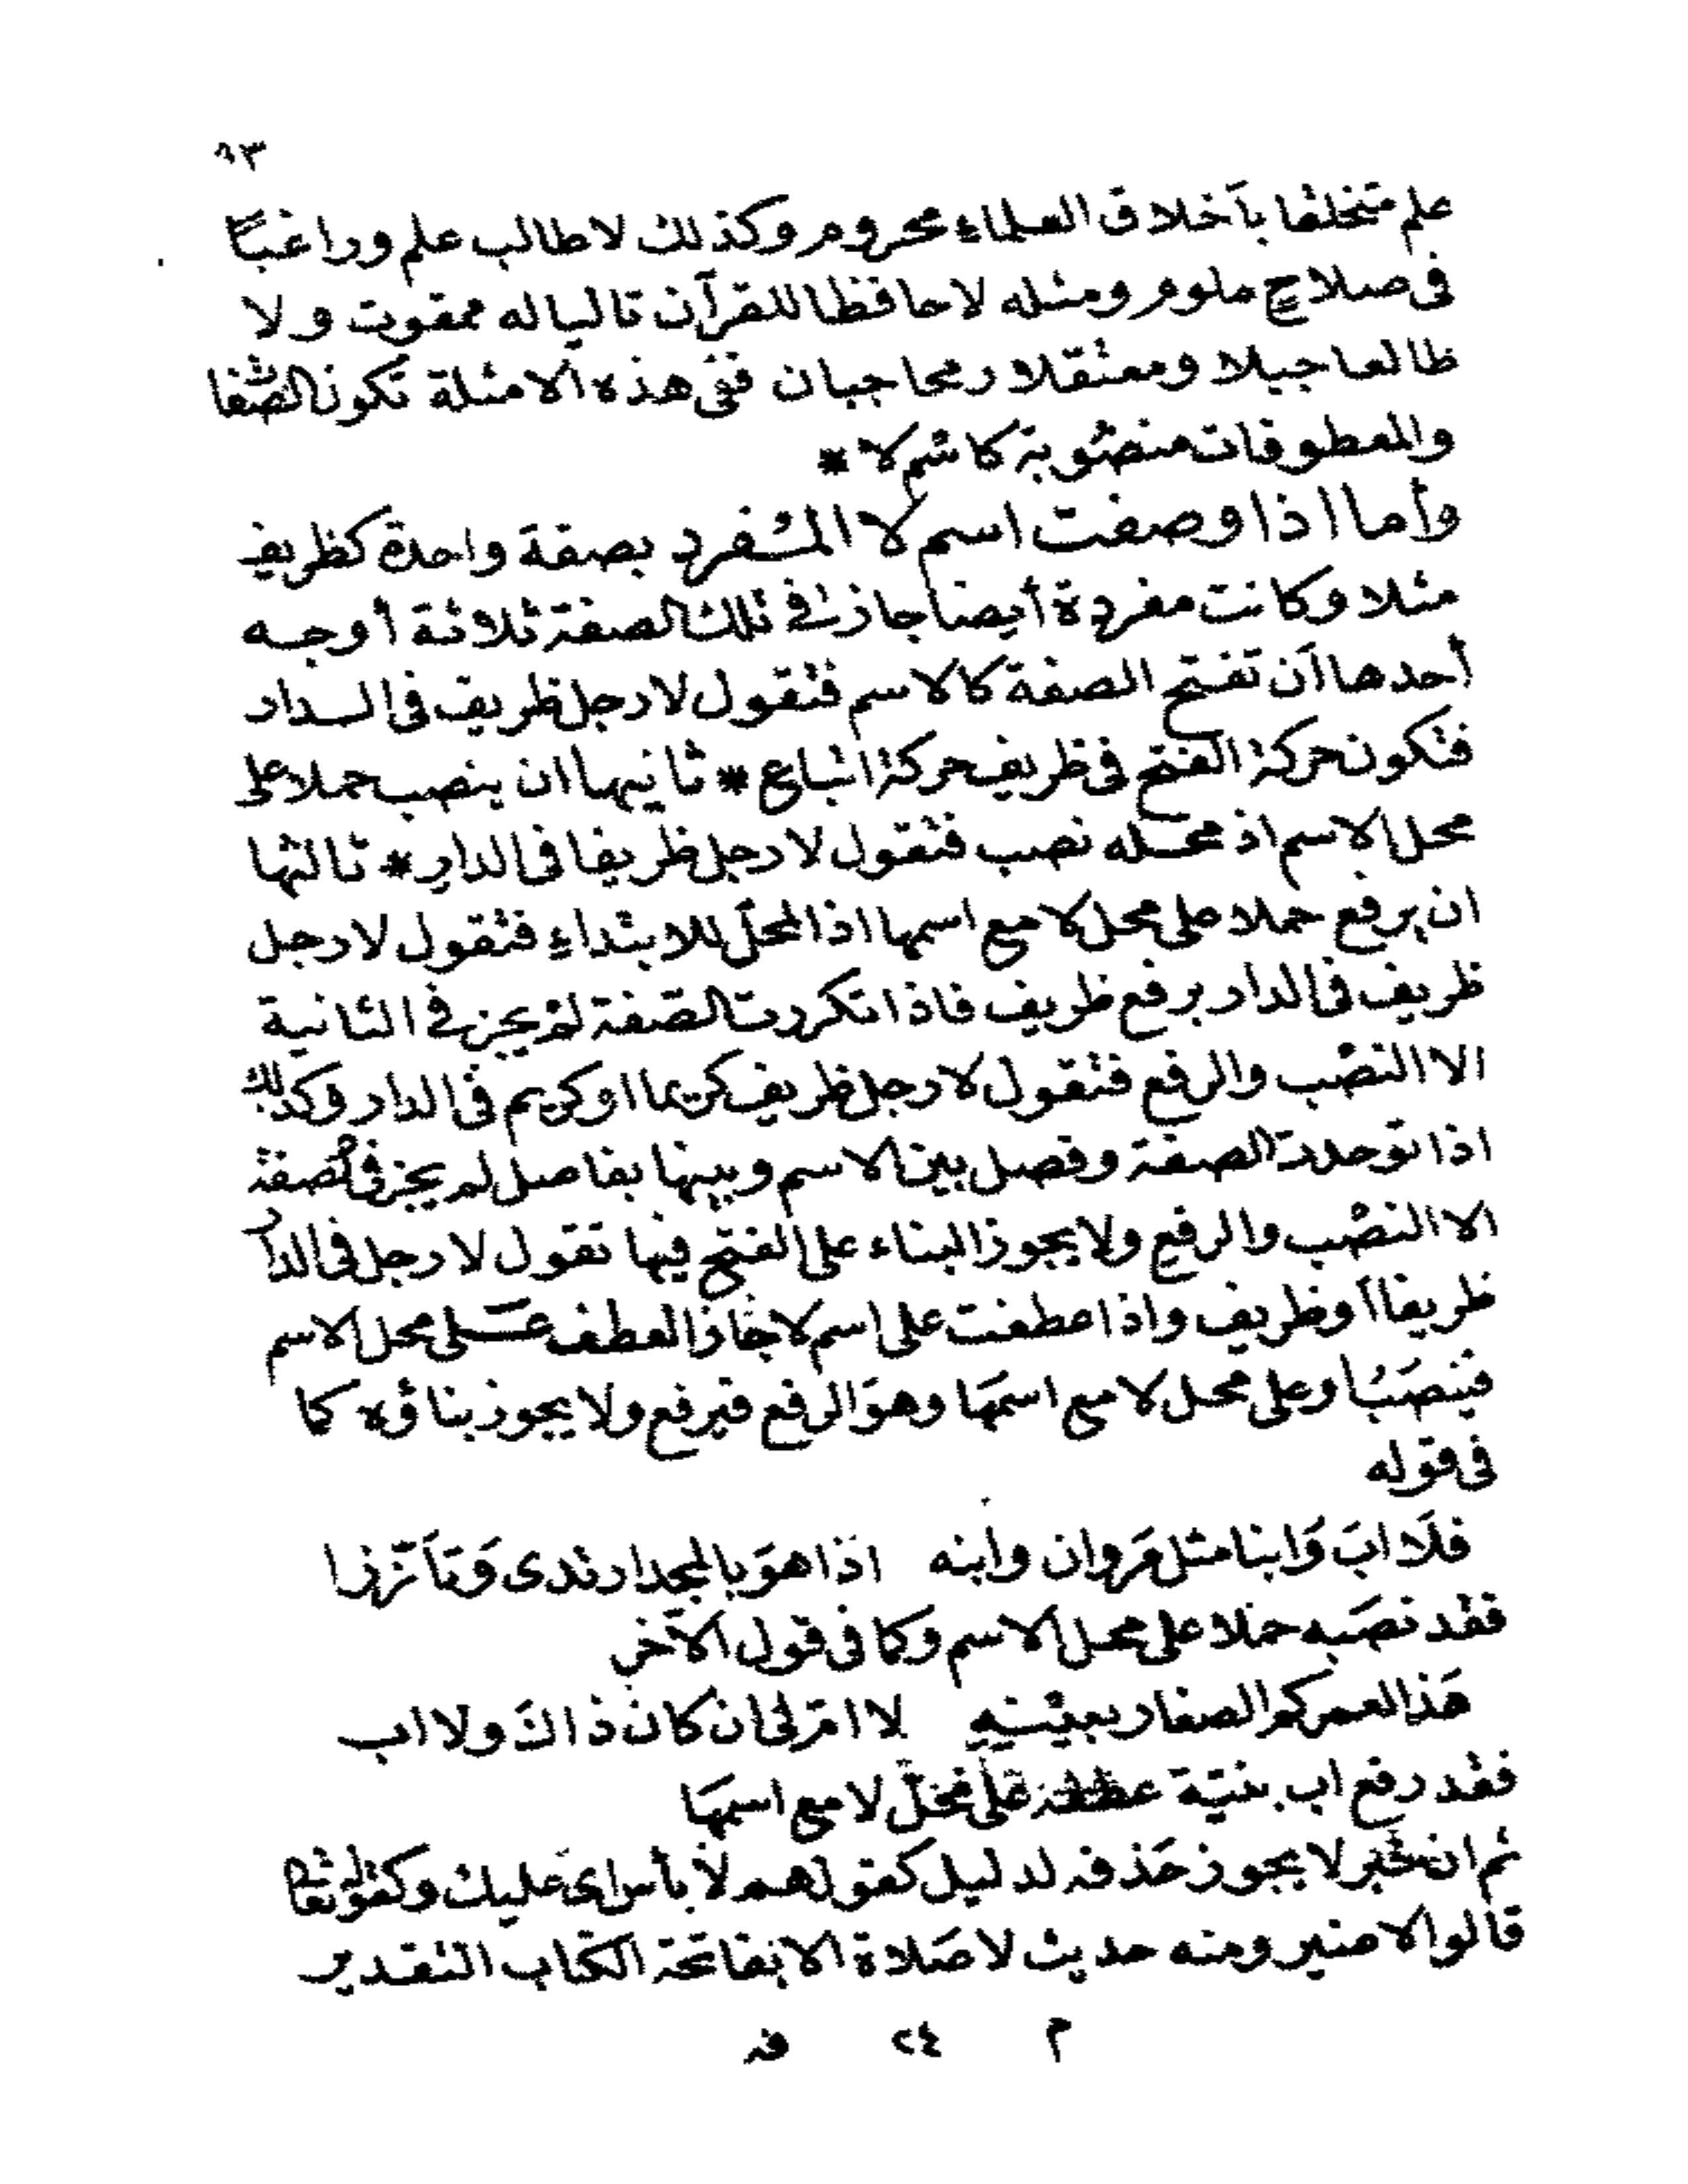 ٩٣
علم متخلقا بأخلاق العلماء محروم وكذلك لا طالب علم وراغبًا
فى صلاح ملوم ومثله لا حافظا للقرآن تاليا له ممقوت ولا
طالعا جبلا ومعتقلا رمحا جبان ففى هذه الامثلة تكون الصفا
والمعطوفات منصوبة كاسم لا *
وأما اذا وصفت اسم لا المفرد بصفة واحدة كظريف
مثلا وكانت مفردة أيضا جاز فى تلك الصفة ثلاثة أوجه
أحدها أن تفتح الصفة كالاسم فتقول لا رجل ظريف فى الدار
فتكون حركة الفتح فى ظريف حركة اتباع * ثانيها ان ينصب حملا على
محل الاسم اذ محله نصب فتقول لا رجل ظريفا فى الدار * ثالثها
ان يرفع حملا على محل لا مع اسمها اذ المحل للابتداء فتقول لا رجل
ظريف فى الدار برفع ظريف فاذا تكررت الصفة لم يجز فى الثانية
الا النصب والرفع فتقول لا رجل ظريف كريما او كريم فى الدار وكذلك
اذا توحدت الصفة وفصل بين الاسم وبينها بفاصل لم يجز فى الصفة
الا النصب والرفع ولا يجوز البناء على الفتح فيها تقول لا رجل فى الدار
ظريفا أو ظريف واذا عطفت على اسم لا جاز العطف على محل الاسم
فينصب او على محل لا مع اسمها وهو الرفع فيرفع ولا يجوز بناؤه كما
فى قوله
فلَا ابَ وَابنا مثل مَروان وابنه اذا هوَ بالمجد ارتدى وَتأزرا
فقد نصَبه حملا على محل الاسم وكما فى قول الآخر
هَذا لعمركم الصغار بعينه لا امّ لى ان كان ذاكَ ولا اب
فقد رفع اب بنيّة عطفه على محلّ لا مع اسمهَا
ثم ان خبر لا يجوز حَذفه لدليل كقولهم لا بأس اى عليك وكقوله تعالى
قالوا لا ضير ومنه حديث لا صَلاة الا بفاتحة الكتاب التقدير
م ٢٤ فه